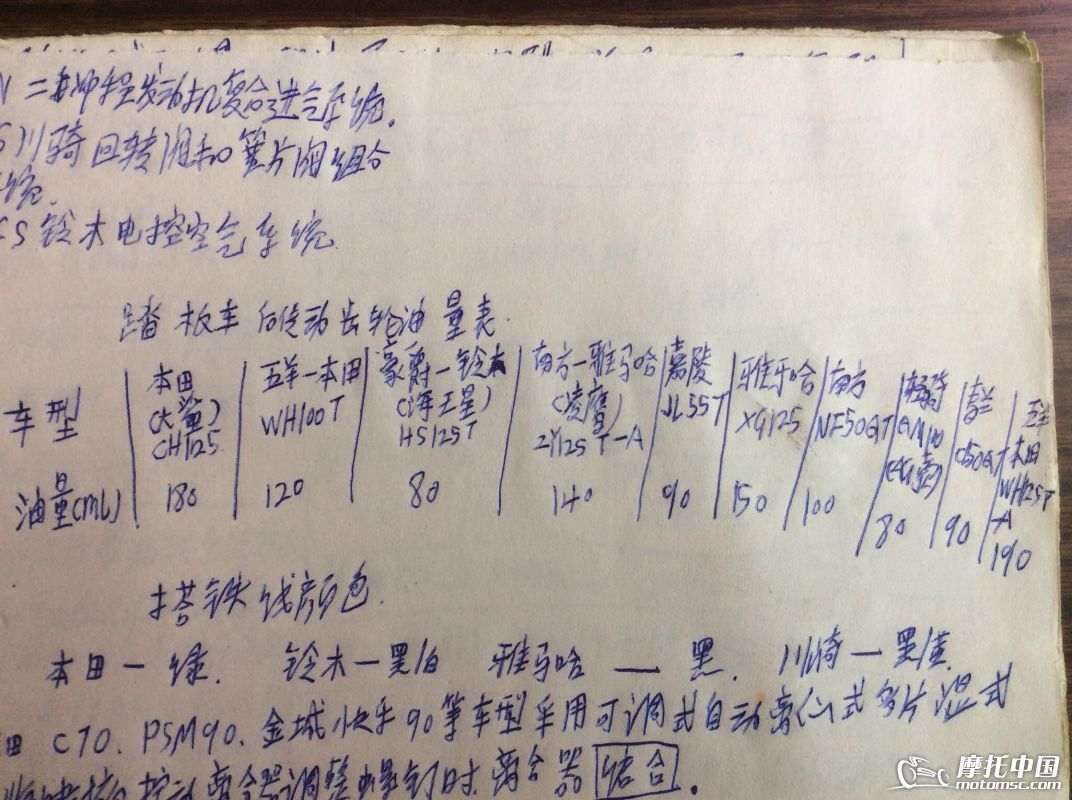 二冲程发动机复合进气系统。
S川骑回转阀和簧片阀组合
统.
S铃木电控空气系统
踏板车后传动齿轮油量表.
车型 本田(大鲨)CH125 五羊一本田WH100T 豪爵一铃木(海王星)HS125T 南方一雅马哈(凌鹰)ZY125T-A 嘉陵JL55T 雅马哈XG125 南方NF50QT 轻骑 五羊本田WH125T-A
油量(mL) 180 120 80 140 90 150 100 80 90 190
搭铁线颜色.
本田一绿. 铃木一黑/白 雅马哈一黑. 川骑一黑/黄.
田 C70. PSM90. 金城快乐90等车型采用可调式自动离心式多片湿式
离合器调整螺钉时.离合器结合.
摩托中国
motomsc.com